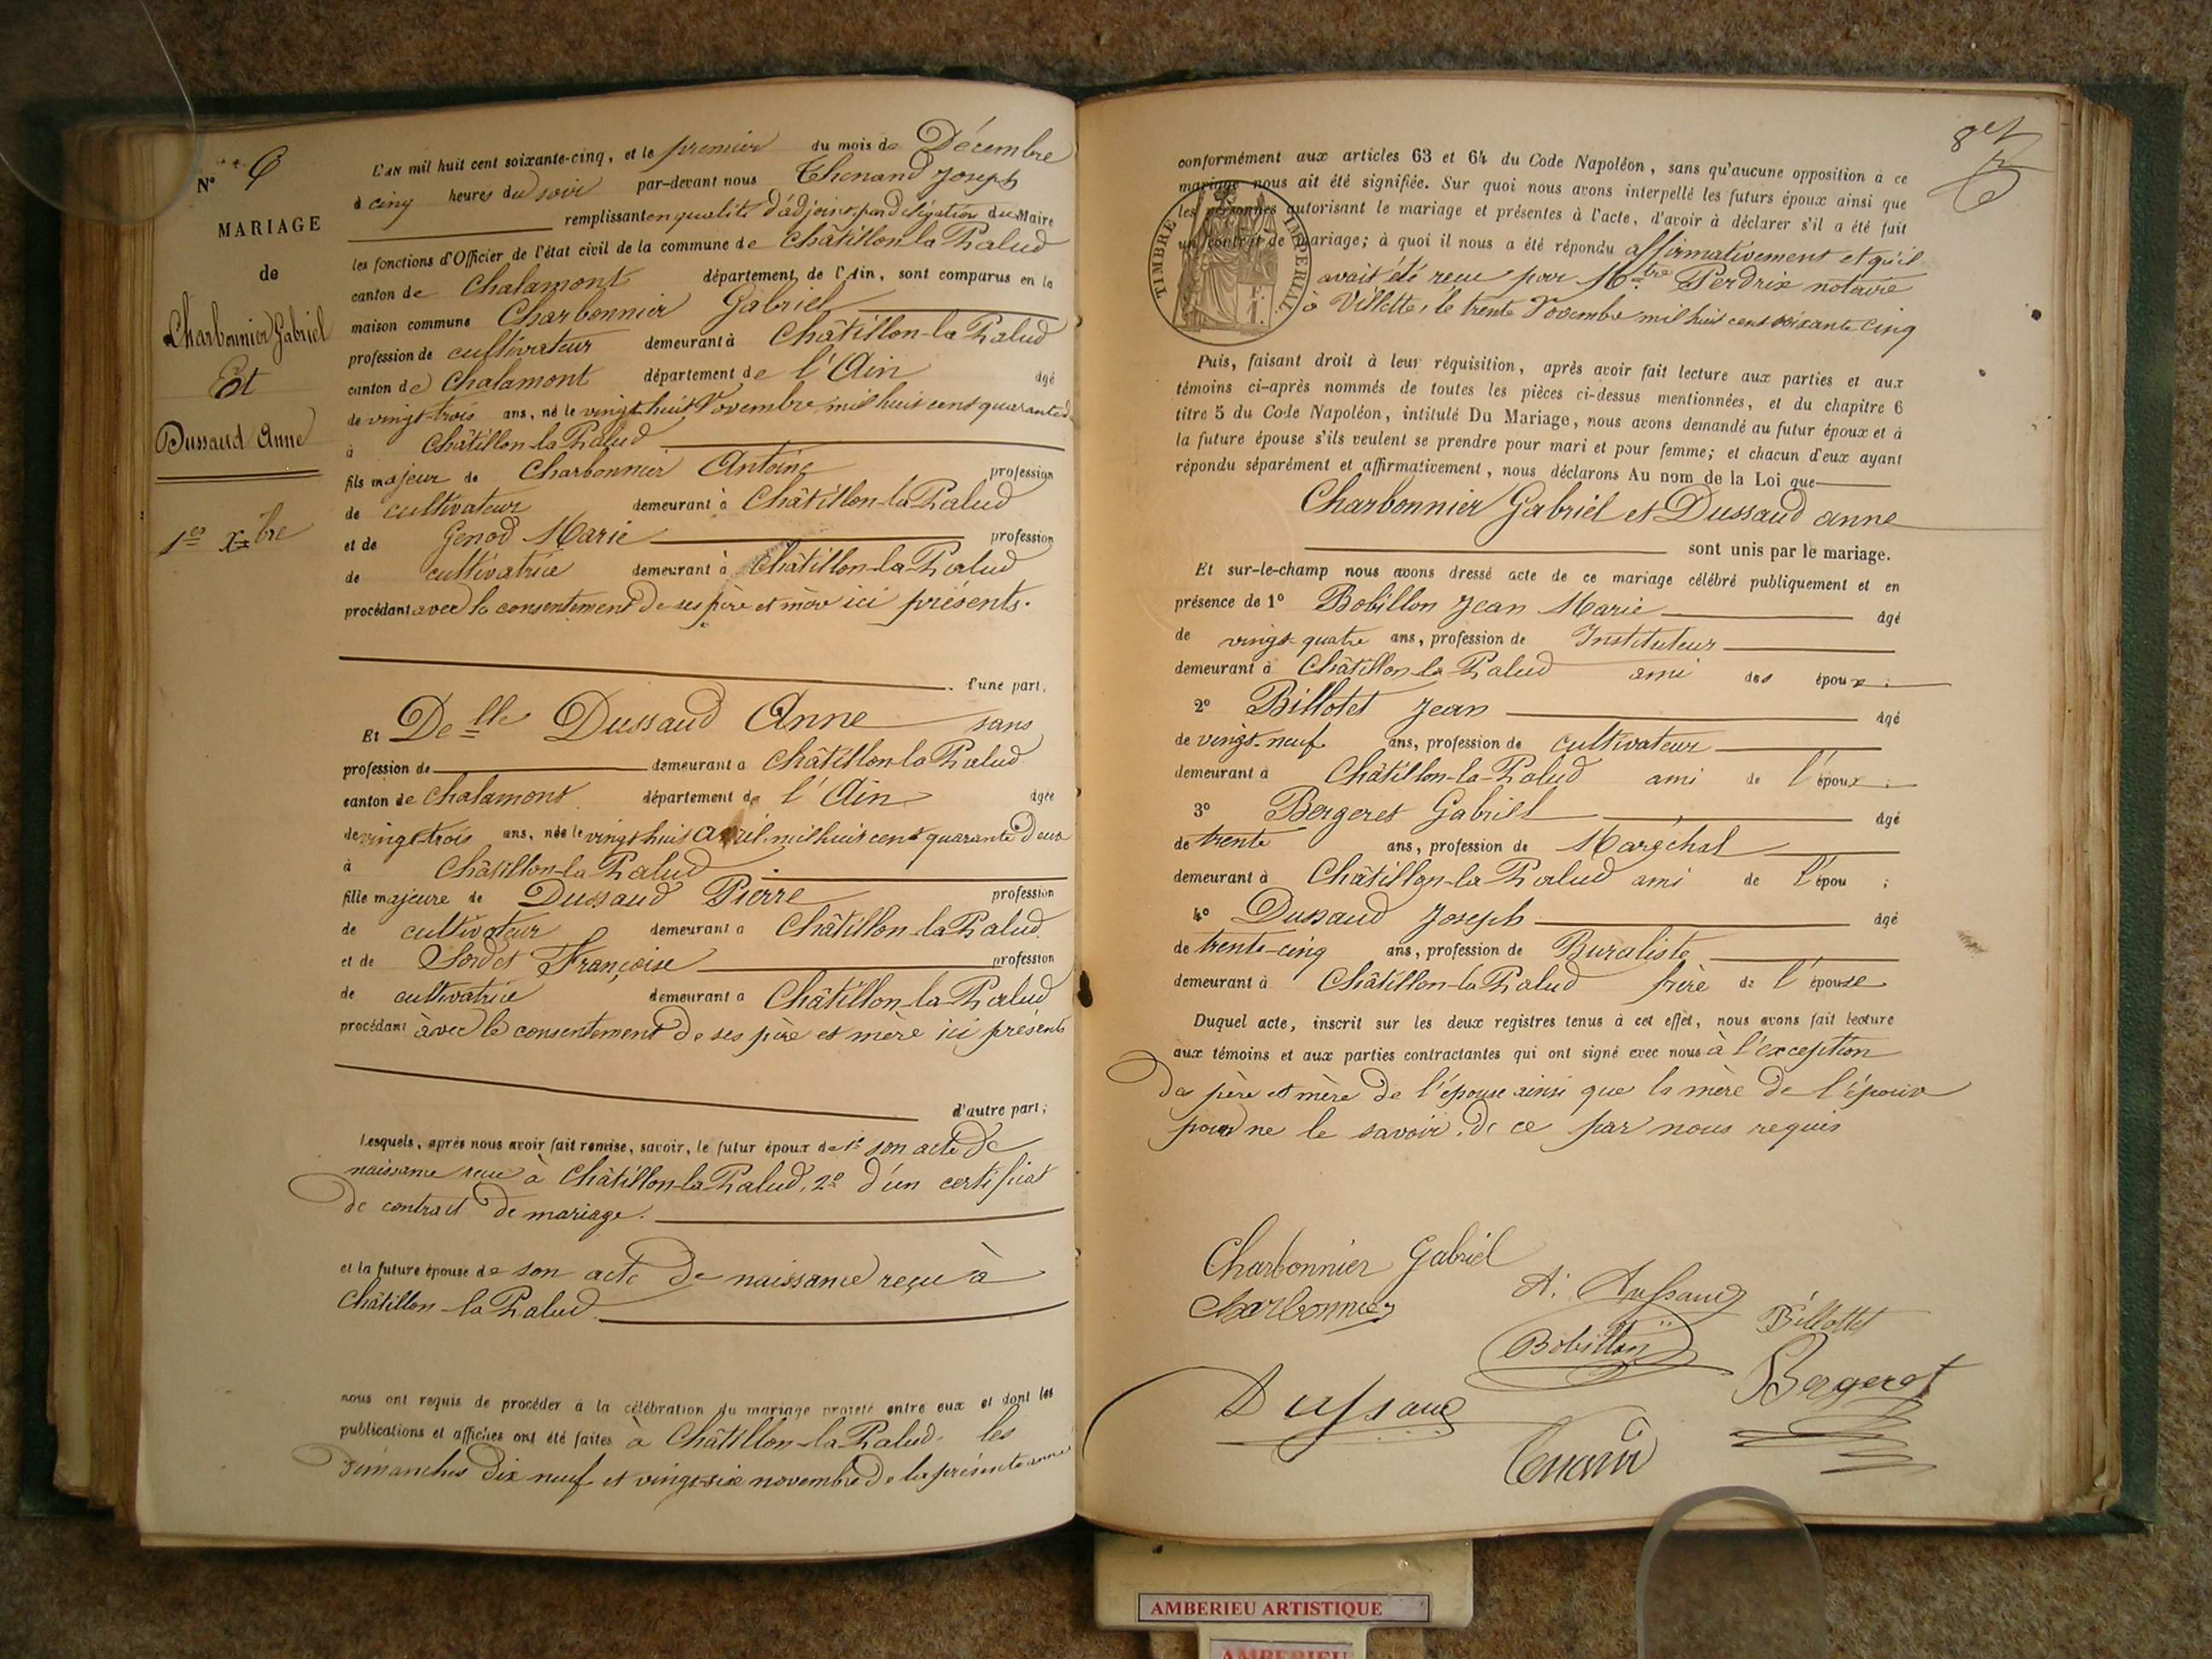 N° 9
MARIAGE
de
Charbonnier Gabriel
Et
Dussaud Anne
1er Xbre
L'AN mil huit cent soixante-cinq, et le premier du mois de Décembre
à cinq heures du soir par-devant nous Thenand Joseph
remplissant en qualité d'adjoint par délégation du Maire
les fonctions d'Officier de l'état civil de la commune de Châtillon la Palud
canton de Chalamont département de l'Ain, sont comparus en la
maison commune Charbonnier Gabriel
profession de cultivateur demeurant à Châtillon-la Palud
canton de Chalamont département de l'Ain âgé
de vingt-trois ans, né le vingt huit Novembre mil huit cent quarante
à Châtillon-la Palud
fils majeur de Charbonnier Antoine profession
de cultivateur demeurant à Châtillon-la Palud
et de Genod Marie profession
de cultivatrice demeurant à Châtillon-la-Palud
procédant avec le consentement de ses père et mère ici présents.
l'une part,
Et Delle Dussaud Anne sans
profession de demeurant à Châtillon-la Palud
canton de Chalamont département de l'Ain âgée
de vingt-trois ans, née le vingt huit avril mil huit cent quarante deux
à Châtillon-la-Palud
fille majeure de Dussaud Pierre profession
de cultivateur demeurant à Châtillon-la Palud
et de Sordet Françoise profession
de cultivatrice demeurant à Châtillon-la-Palud
procédant avec le consentement de ses père et mère ici présents
d'autre part;
Lesquels, après nous avoir fait remise, savoir, le futur époux de 1° son acte de
naissance reçu à Châtillon-la Palud, 2° d'un certificat
de contrat de mariage.
et la future épouse de son acte de naissance reçu à
Châtillon-la Palud
nous ont requis de procéder à la célébration du mariage projeté entre eux et dont les
publications et affiches ont été faites à Châtillon-la Palud les
Dimanches dix neuf et vingt-six novembre de la présente année
conformément aux articles 63 et 64 du Code Napoléon, sans qu'aucune opposition à ce
mariage nous ait été signifiée. Sur quoi nous avons interpellé les futurs époux ainsi que
les personnes autorisant le mariage et présentes à l'acte, d'avoir à déclarer s'il a été fait
un contrat de mariage; à quoi il nous a été répondu affirmativement et qu'il
avait été reçu par Mtre Perdrix notaire
à Villette, le trente Novembre mil huit cent soixante cinq
TIMBRE IMPERIAL
Puis, faisant droit à leur réquisition, après avoir fait lecture aux parties et aux
témoins ci-après nommés de toutes les pièces ci-dessus mentionnées, et du chapitre 6
titre 5 du Code Napoléon, intitulé Du Mariage, nous avons demandé au futur époux et à
la future épouse s'ils veulent se prendre pour mari et pour femme; et chacun d'eux ayant
répondu séparément et affirmativement, nous déclarons Au nom de la Loi que
Charbonnier Gabriel et Dussaud anne
sont unis par le mariage.
Et sur-le-champ nous avons dressé acte de ce mariage célébré publiquement et en
présence de 1° Bobillon Jean Marie âgé
de vingt-quatre ans, profession de Instituteur
demeurant à Châtillon-la Palud ami des époux;
2° Billotet Jean âgé
de vingt-neuf ans, profession de cultivateur
demeurant à Châtillon-la-Palud ami de l'époux;
3° Bergeret Gabriel âgé
de trente ans, profession de Maréchal
demeurant à Châtillon-la Palud ami de l'épou ;
4° Dussaud Joseph âgé
de trente-cinq ans, profession de Buraliste
demeurant à Châtillon-la Palud frère de l'épouse
Duquel acte, inscrit sur les deux registres tenus à cet effet, nous avons fait lecture
aux témoins et aux parties contractantes qui ont signé avec nous à l'exception
des père et mère de l'épouse ainsi que la mère de l'époux
pour ne le savoir de ce par nous requis
Charbonnier Gabriel
A. Dussaud
Charbonnier
Billottet
Bobillon
Bergeret
Dussaud
AMBERIEU ARTISTIQUE
AMBERIEU